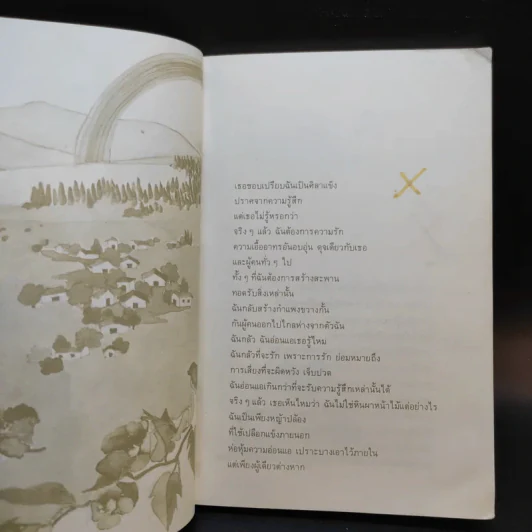 เธอชอบเปรียบฉันเป็นศิลาแข็ง
ปราศจากความรู้สึก
แต่เธอไม่รู้หรอกว่า
จริง ๆ แล้ว ฉันต้องการความรัก
ความเอื้ออาทรอันอบอุ่น ดุจเดียวกับเธอ
และผู้คนทั่ว ๆ ไป
ทั้ง ๆ ที่ฉันต้องการสร้างสะพาน
ทอดรับสิ่งเหล่านั้น
ฉันกลับสร้างกำแพงขวางกั้น
กันผู้คนออกไปไกลห่างจากตัวฉัน
ฉันกลัว ฉันอ่อนแอเธอรู้ไหม
ฉันกลัวที่จะรัก เพราะการรัก ย่อมหมายถึง
การเสี่ยงที่จะผิดหวัง เจ็บปวด
ฉันอ่อนแอเกินกว่าที่จะรับความรู้สึกเหล่านั้นได้
จริง ๆ แล้ว เธอเห็นไหมว่า ฉันไม่ใช่หินผาหน้าไม้แต่อย่างไร
ฉันเป็นเพียงหญ้าปล้อง
ที่ใช้เปลือกแข็งภายนอก
ห่อหุ้มความอ่อนแอ เปราะบางเอาไว้ภายใน
แต่เพียงผู้เดียวต่างหาก